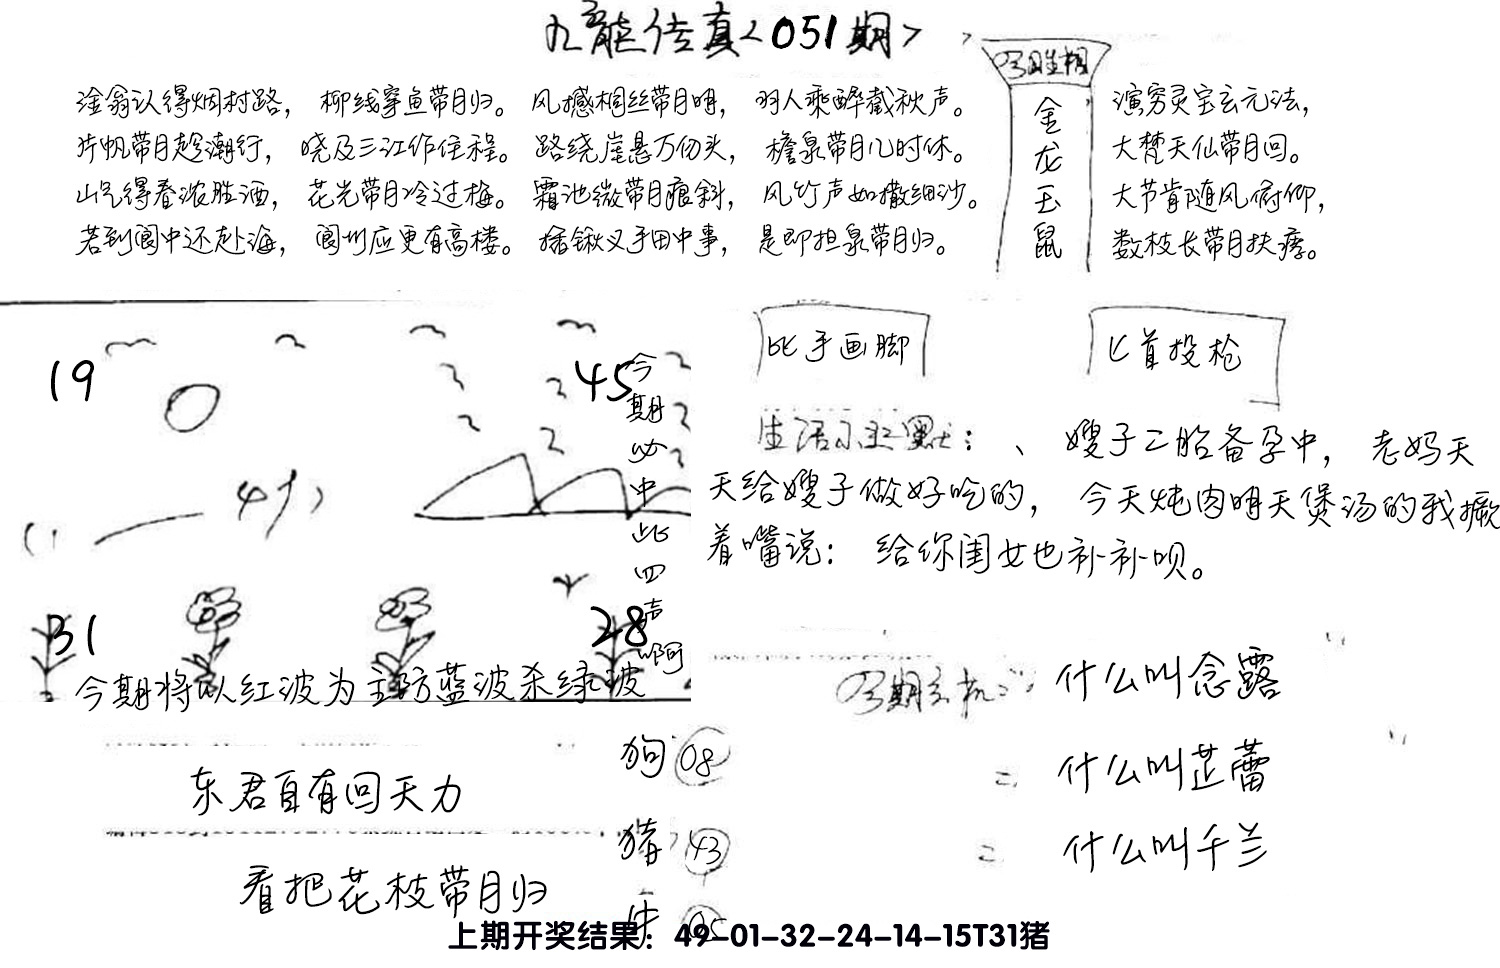 九龙传真<051期>
淦翁认得烟村路, 柳线穿鱼带月归。 风撼桐丝带月明, 羽人乘醉截秋声。
片帆带月趁潮行, 晓及三江作住程。 路绕崖悬万仞头, 檐泉带月几时休。
山气得春浓胜酒, 花光带月冷过梅。 霜池微带月痕斜, 风竹声如撒细沙。
若到阆中还赴海, 阆州应更有高楼。 插锹叉手田中事, 是即担泉带月归。
金龙玉鼠
演穷灵宝玄元法,
大梵天仙带月回。
大节肯随风俯仰,
数枝长带月扶疏。
19
45
31
28
今期必中此四声啊
今期将以红波为主防蓝波杀绿波
比手画脚
匕首投枪
生活幽默: 、嫂子二胎备孕中, 老妈天
天给嫂子做好吃的, 今天炖肉明天煲汤的我撅
着嘴说: 给你闺女也补补呗。
今期玄机 什么叫念露
什么叫芷蕾
什么叫千兰
东君自有回天力
看把花枝带月归
狗 08
猪 43
牛 05
上期开奖结果: 49-01-32-24-14-15T31猪